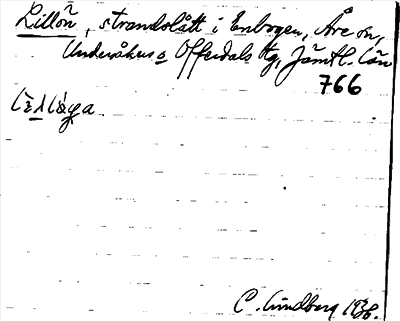 Lillön, strandslått i Enbogen, Åre sn,
Undersåkers o Offerdals tg, Jämtl. län
766
C. Lindberg 1936.